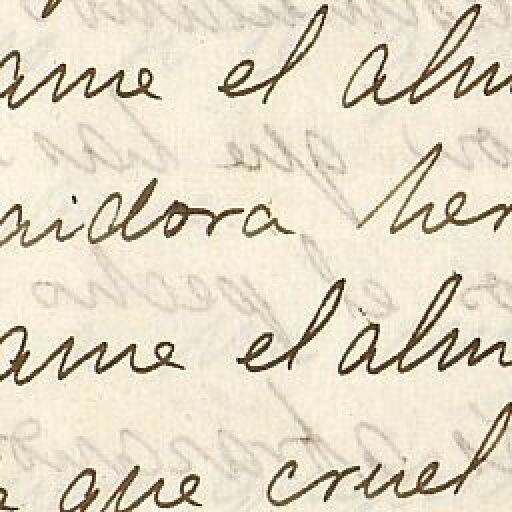 ame el alm
aidora her
ame el alm
e que cruel